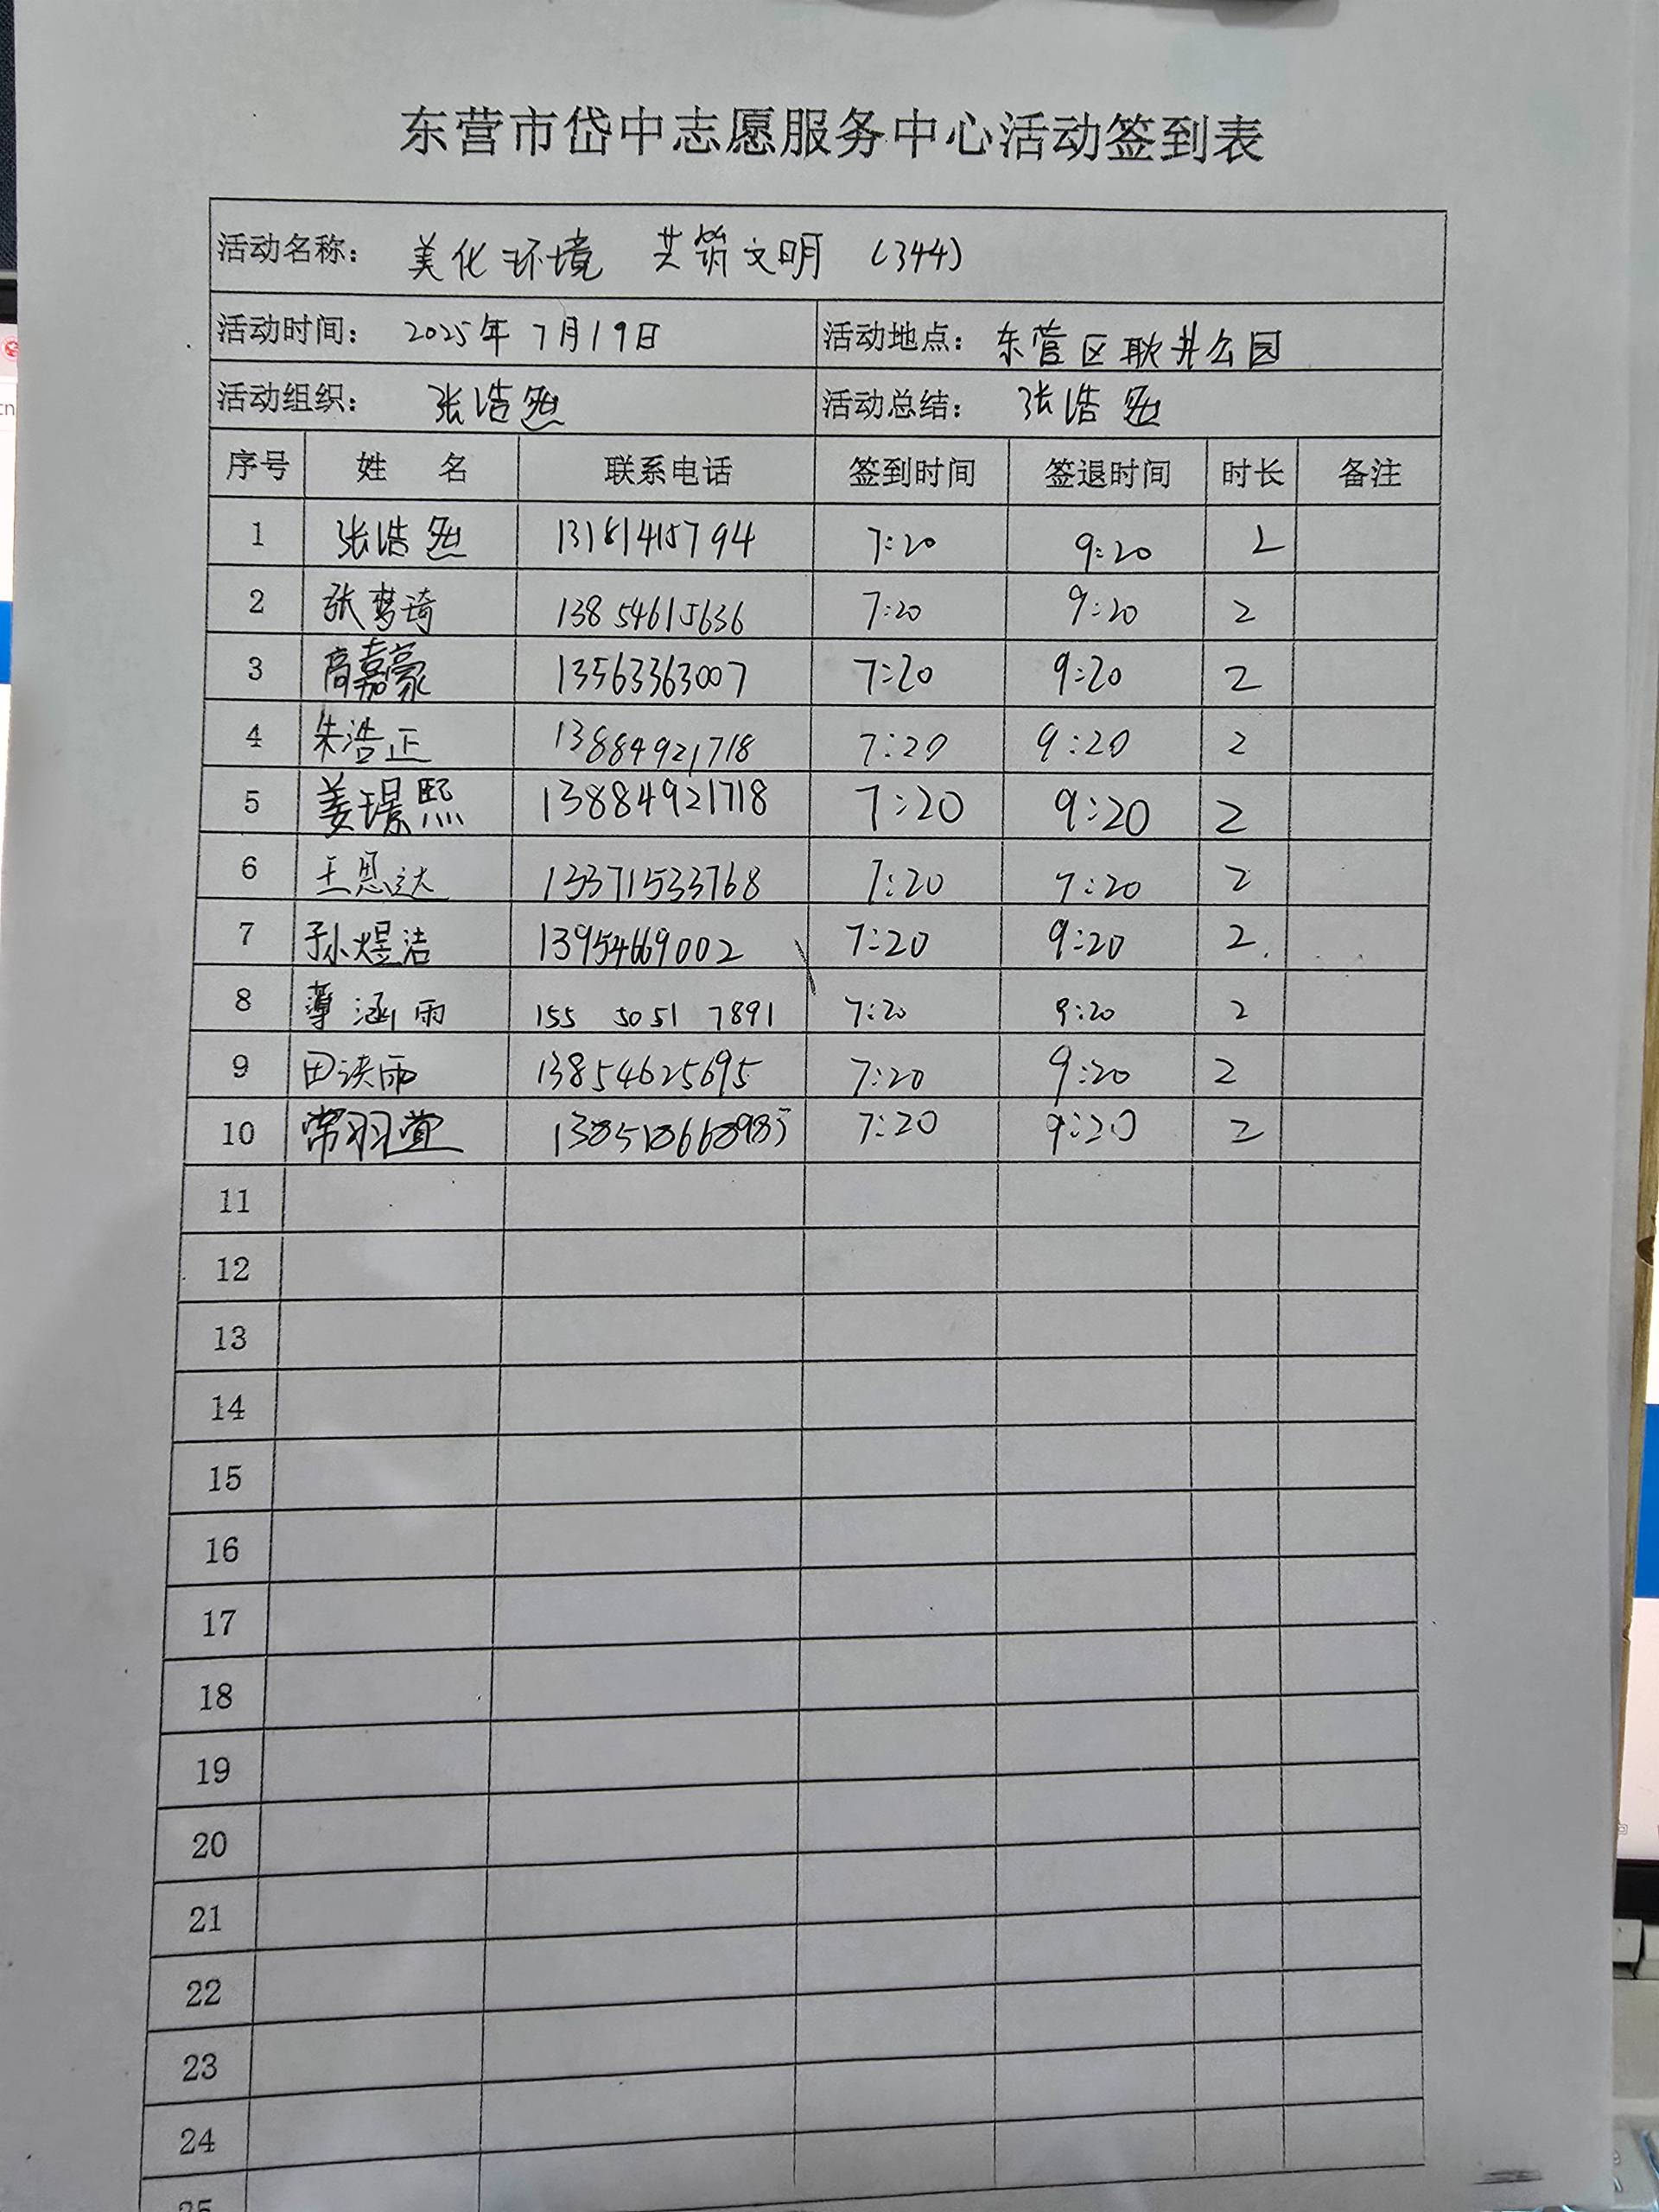 东营市岱中志愿服务中心活动签到表
活动名称: 美化环境 共筑文明 (344)
活动时间: 2025年7月19日 活动地点: 东营区耿井公园
活动组织: 张浩然 活动总结: 张浩然
序号 姓 名 联系电话 签到时间 签退时间 时长 备注
1 张浩然 13181415794 7:20 9:20 2
2 张梦琦 13854615636 7:20 9:20 2
3 高嘉豪 13563363007 7:20 9:20 2
4 朱浩正 13884921718 7:20 9:20 2
5 姜璟熙 13884921718 7:20 9:20 2
6 王恩达 13371533768 7:20 9:20 2
7 孙煜洁 13954669002 7:20 9:20 2
8 涵雨 155 5051 7891 7:20 9:20 2
9 田 雨 13854625695 7:20 9:20 2
10 常羽萱 7:20 9:20 2
11
12
13
14
15
16
17
18
19
20
21
22
23
24
25